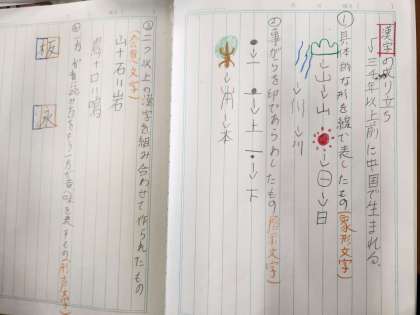 漢字の成り立ち
↓三千年以上前に中国で生まれる。
①具体的な形を絵で表したもの(象形文字)
→山→山 →日
→川→川
②事がらを印であらわしたもの(文字)
→上 →下
→本
③二つ以上の漢字を組み合わせて作られたもの
(会意文字)
山+石=岩
鳥+口=鳴
④ 一方が意味を表すもの(形声文字)
板 泳